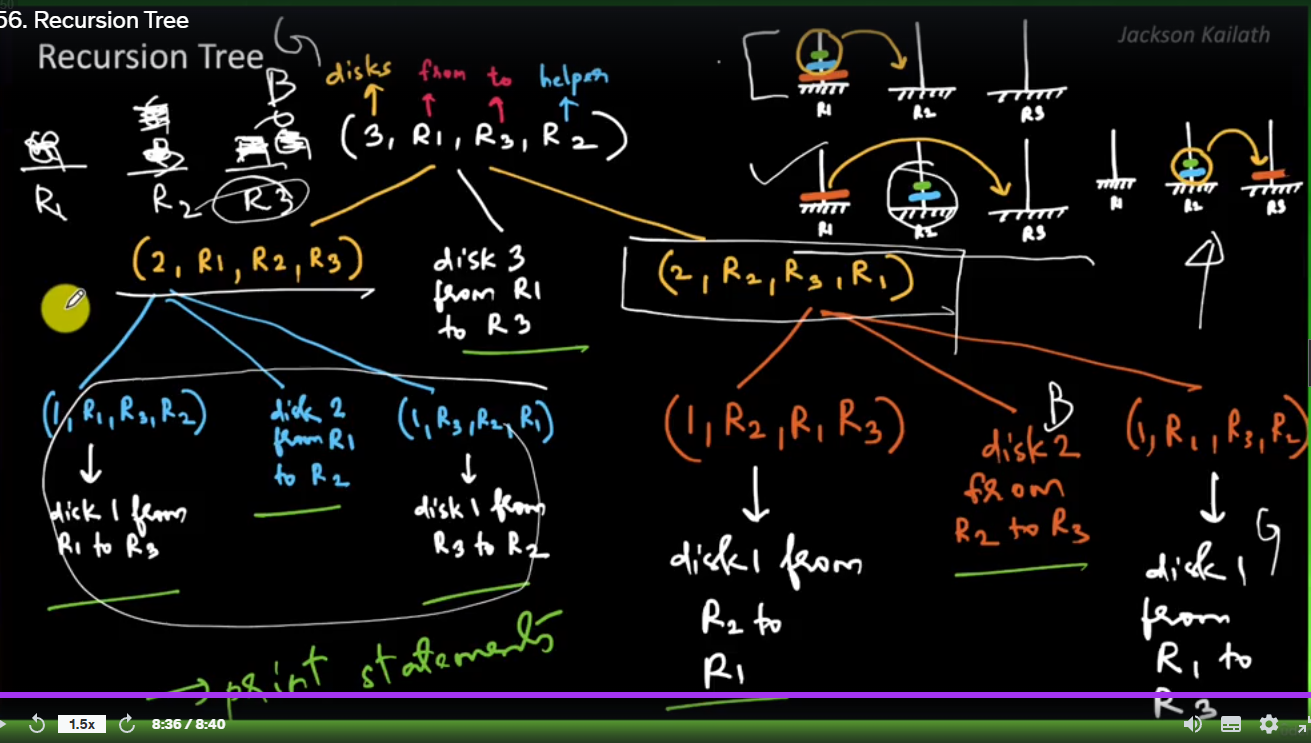 56. Recursion Tree
Recursion Tree
Jackson Kailath
G
B
disks from to helper
(3, R1, R3, R2)
R1 R2 R3
R1 R2 R3
R1 R2 R3
R1 R2 R3
(2, R1, R2, R3)
disk 3
from R1
to R3
(2, R2, R3, R1)
(1, R1, R3, R2)
disk 2
from R1
to R2
(1, R3, R2, R1)
disk 1 from
R1 to R3
disk 1 from
R3 to R2
(1, R2, R1 R3)
B
disk 2
from
R2 to R3
(1, R1, R3, R2)
disk 1 from
R2 to
R1
G
disk 1
from
R1 to
R3
→ print statements
1.5x
8:36 / 8:40